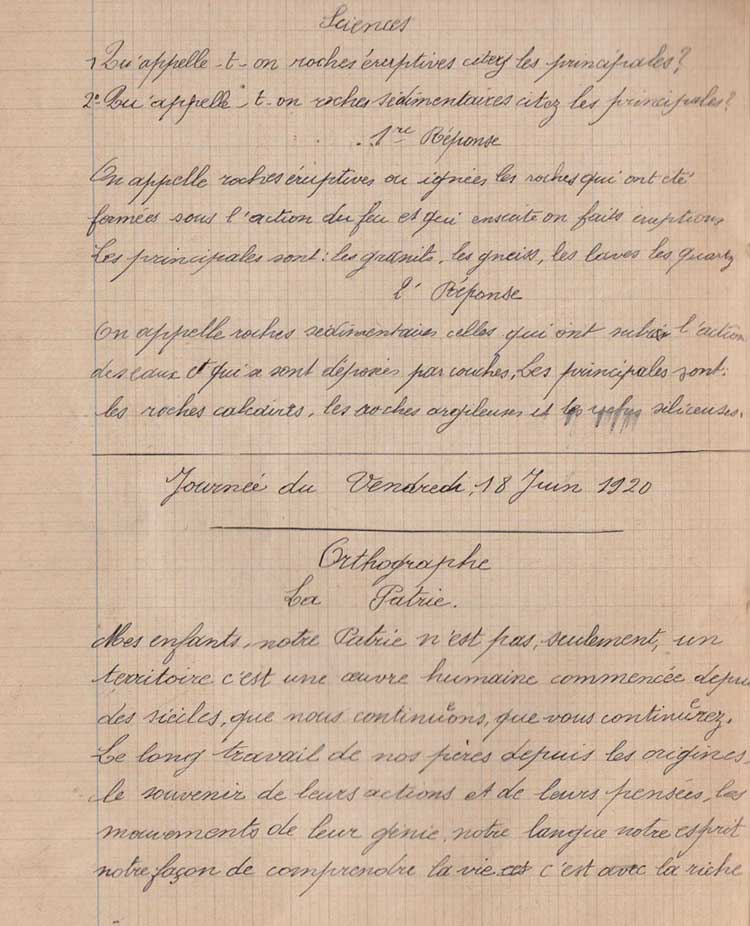 Sciences
1 Qu'appelle-t-on roches éruptives citez les principales?
2° Qu'appelle-t-on roches sédimentaires citez les principales?
1re Réponse
On appelle roches éruptives ou ignées les roches qui ont été
formées sous l'action du feu et qui ensuite on faits éruptions
Les principales sont: les granits, les gneiss, les laves les quartz
2e Réponse
On appelle roches sédimentaires celles qui ont subi l'action
des eaux et qui se sont déposées par couches, Les principales sont:
les roches calcaires, les roches argileuses et les siliceuses.
Journeé du Vendredi, 18 Juin 1920
Orthographe
La Patrie.
Mes enfants, notre Patrie n'est pas, seulement, un
territoire c'est une œuvre humaine commencée depuis
des siècles, que nous continuons, que vous continuerez.
Le long travail de nos pères depuis les origines,
le souvenir de leurs actions et de leurs pensées, les
mouvements de leur génie, notre langue notre esprit
notre façon de comprendre la vie c'est avec la riche